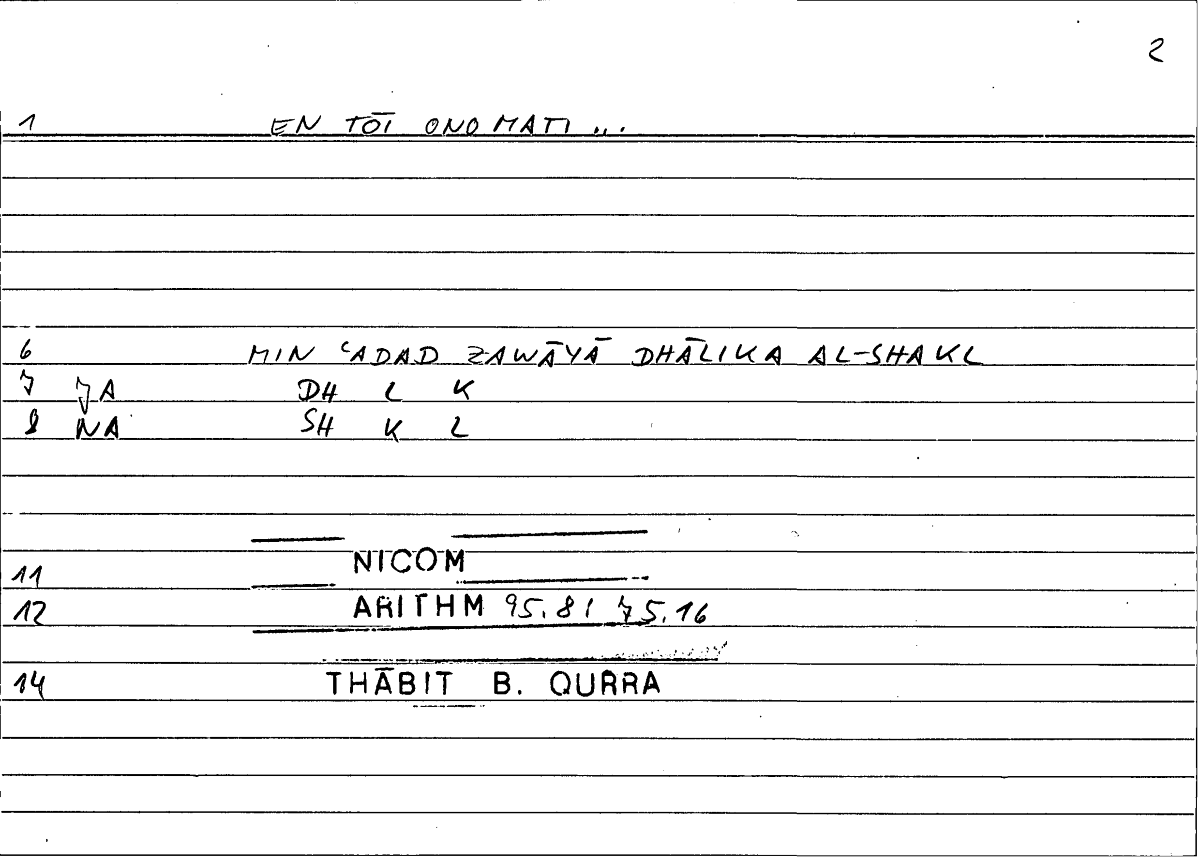 2
1 EN TŌI ONOMATI ...
6 MIN ʿADAD ZAWĀYĀ DHĀLIKA AL-SHAKL
7 JA DH L K
8 NA SH K L
11 NICOM
12 ARITHM 95.81 75.16
14 THĀBIT B. QURRA